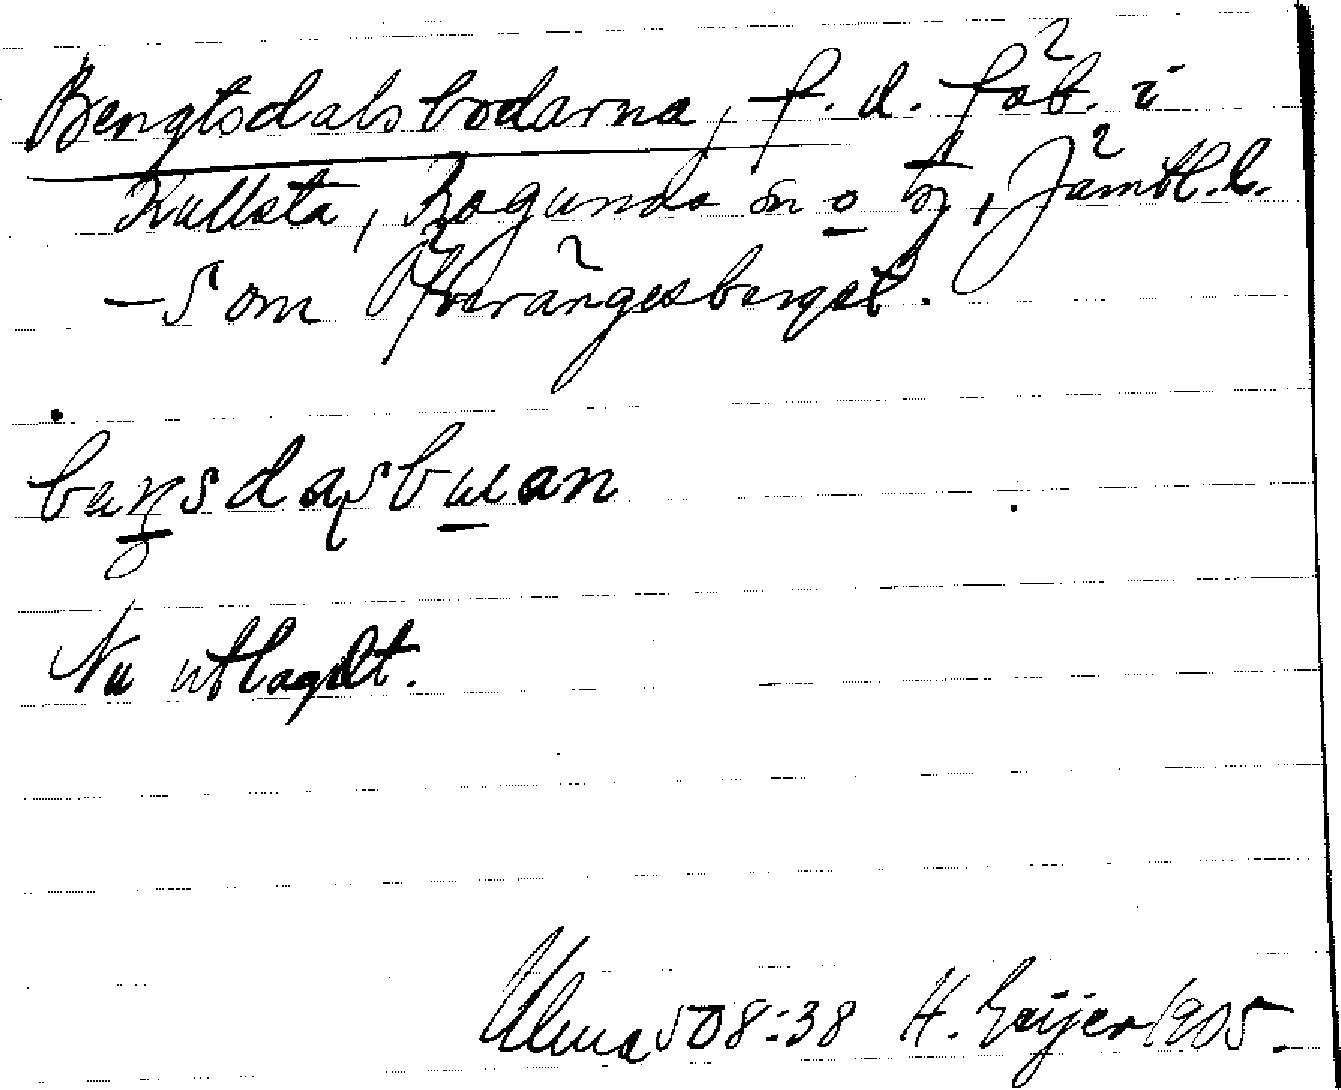 Bengtsdalsbodarna, f. d. fäb. i
Kullsta, Ragunda sn o tg, Jämtl. l.
– S om Öfverängesberget.
Nu utlagdt.
Ulma 508:38 H. Geijer 1905.